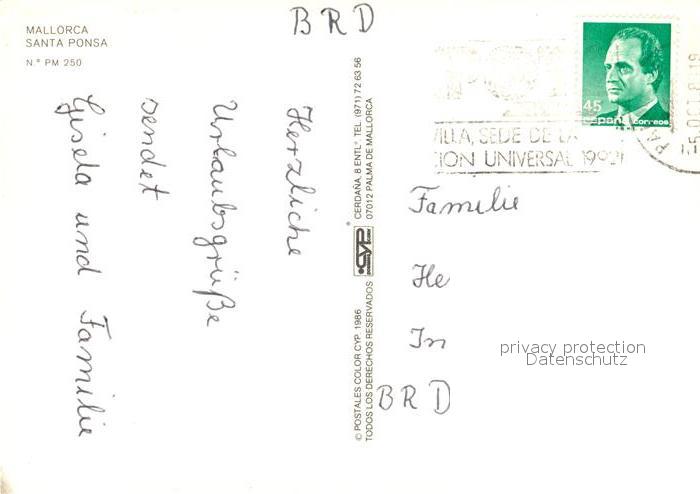 MALLORCA
SANTA PONSA
N.º PM 250
BRD
Herzliche
Urlaubsgrüße
sendet
Gisela und Familie
© POSTALES COLOR CYP. 1986
TODOS LOS DERECHOS RESERVADOS
CYP
CERDAÑA, 8 ENTL.º TEL. (971) 72 63 56
07012 PALMA DE MALLORCA
45
españa correos
VILLA, SEDE DE LA
ION UNIVERSAL 1992
Familie
He
In
BRD
privacy protection
Datenschutz